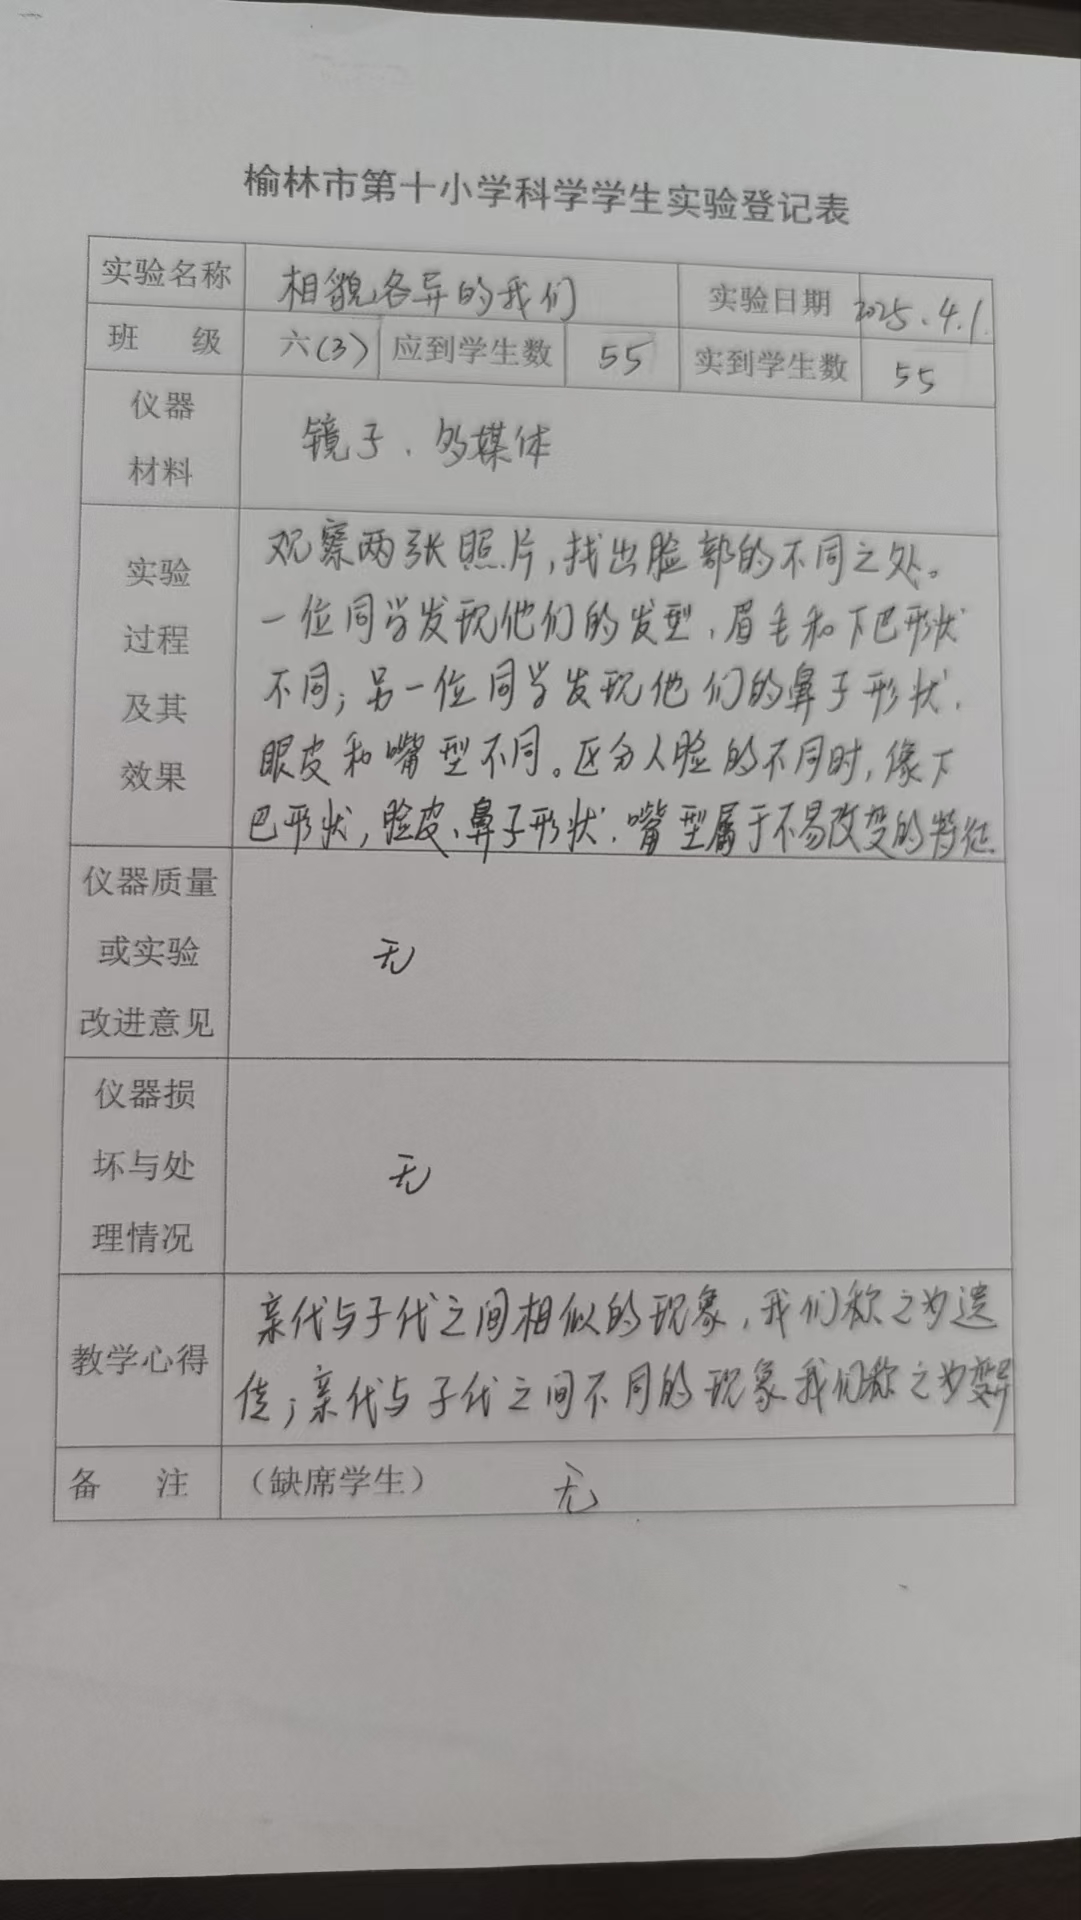 榆林市第十小学科学学生实验登记表
实验名称 相貌各异的我们 实验日期 2025.4.1.
班 级 六(3) 应到学生数 55 实到学生数 55
仪器
材料
镜子、多媒体
实验
过程
及其
效果
观察两张照片,找出脸部的不同之处。
一位同学发现他们的发型、眉毛和下巴形状
不同;另一位同学发现他们的鼻子形状、
眼皮和嘴型不同。区分人脸的不同时,像下
巴形状,脸皮、鼻子形状、嘴型属于不易改变的特征.
仪器质量
或实验
改进意见
无
仪器损
坏与处
理情况
无
教学心得
亲代与子代之间相似的现象,我们称之为遗
传;亲代与子代之间不同的现象我们称之为变异
备 注 (缺席学生) 无